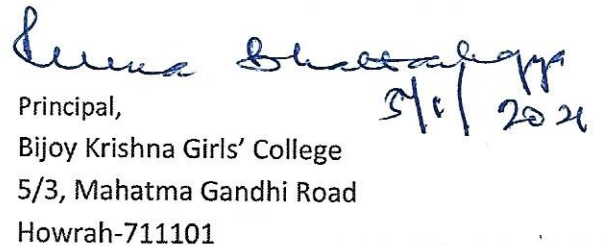 Bhattacharyya
5/1/2021
Principal,
Bijoy Krishna Girls' College
5/3, Mahatma Gandhi Road
Howrah-711101